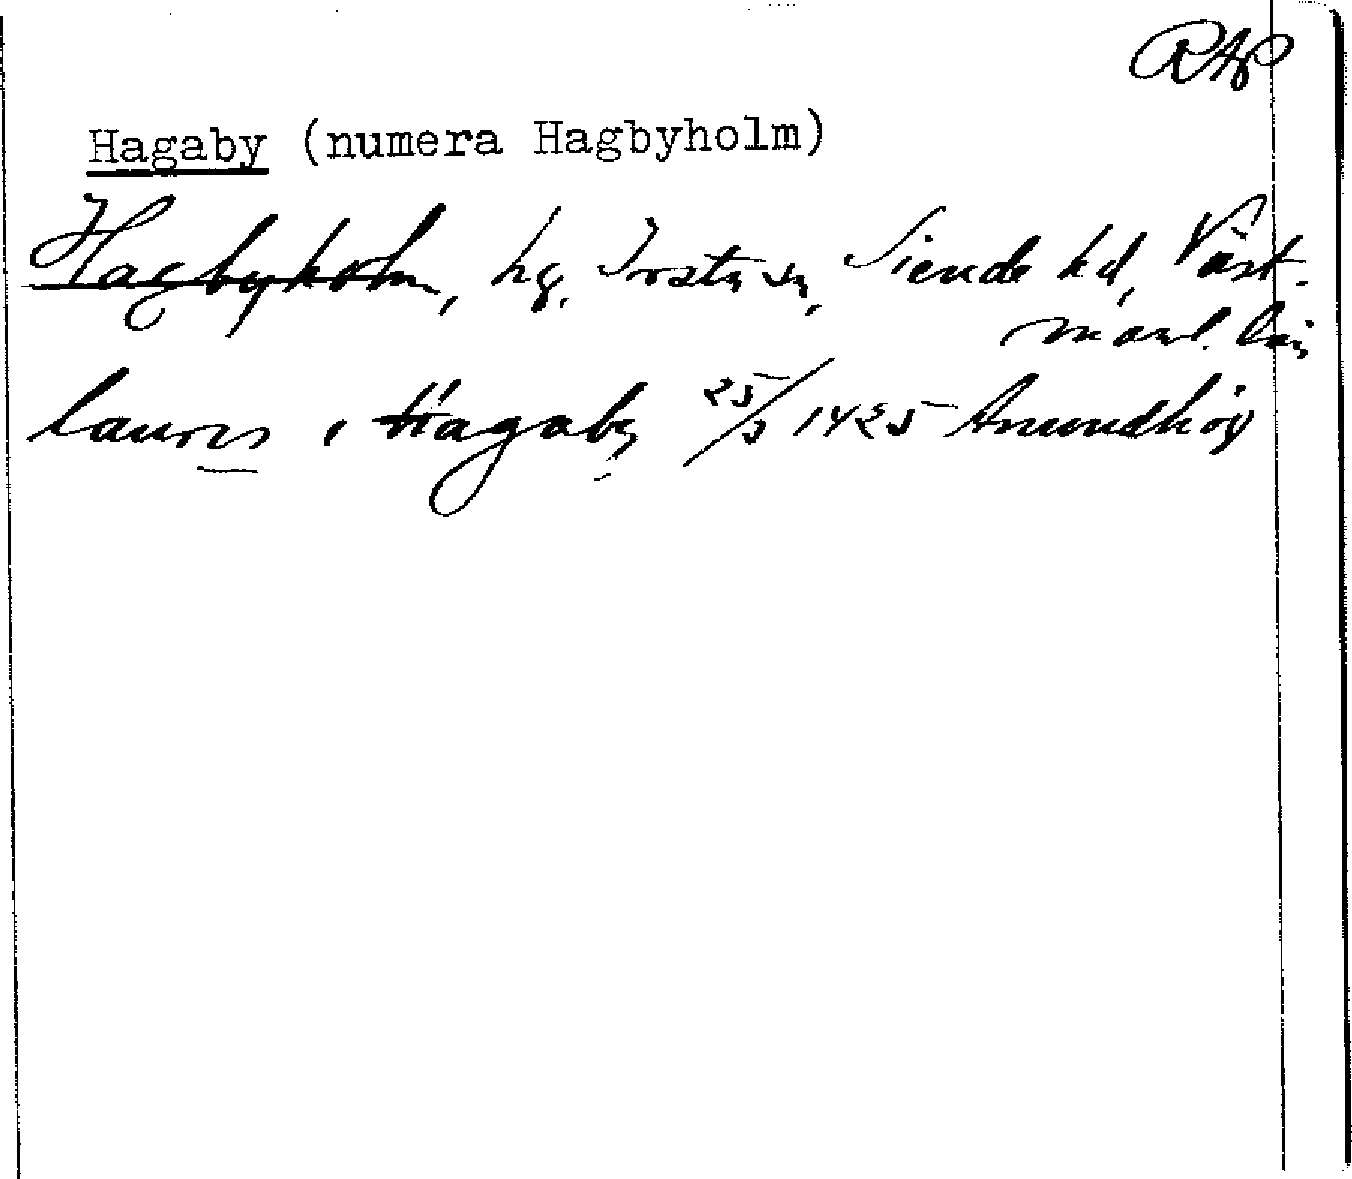 RAp
Hagaby (numera Hagbyholm)
Hagbyholm, hg, Irsta sn, Siende hd, Väst-
manl. län
laurens i Hagaby 25/3 1425 Anundhög